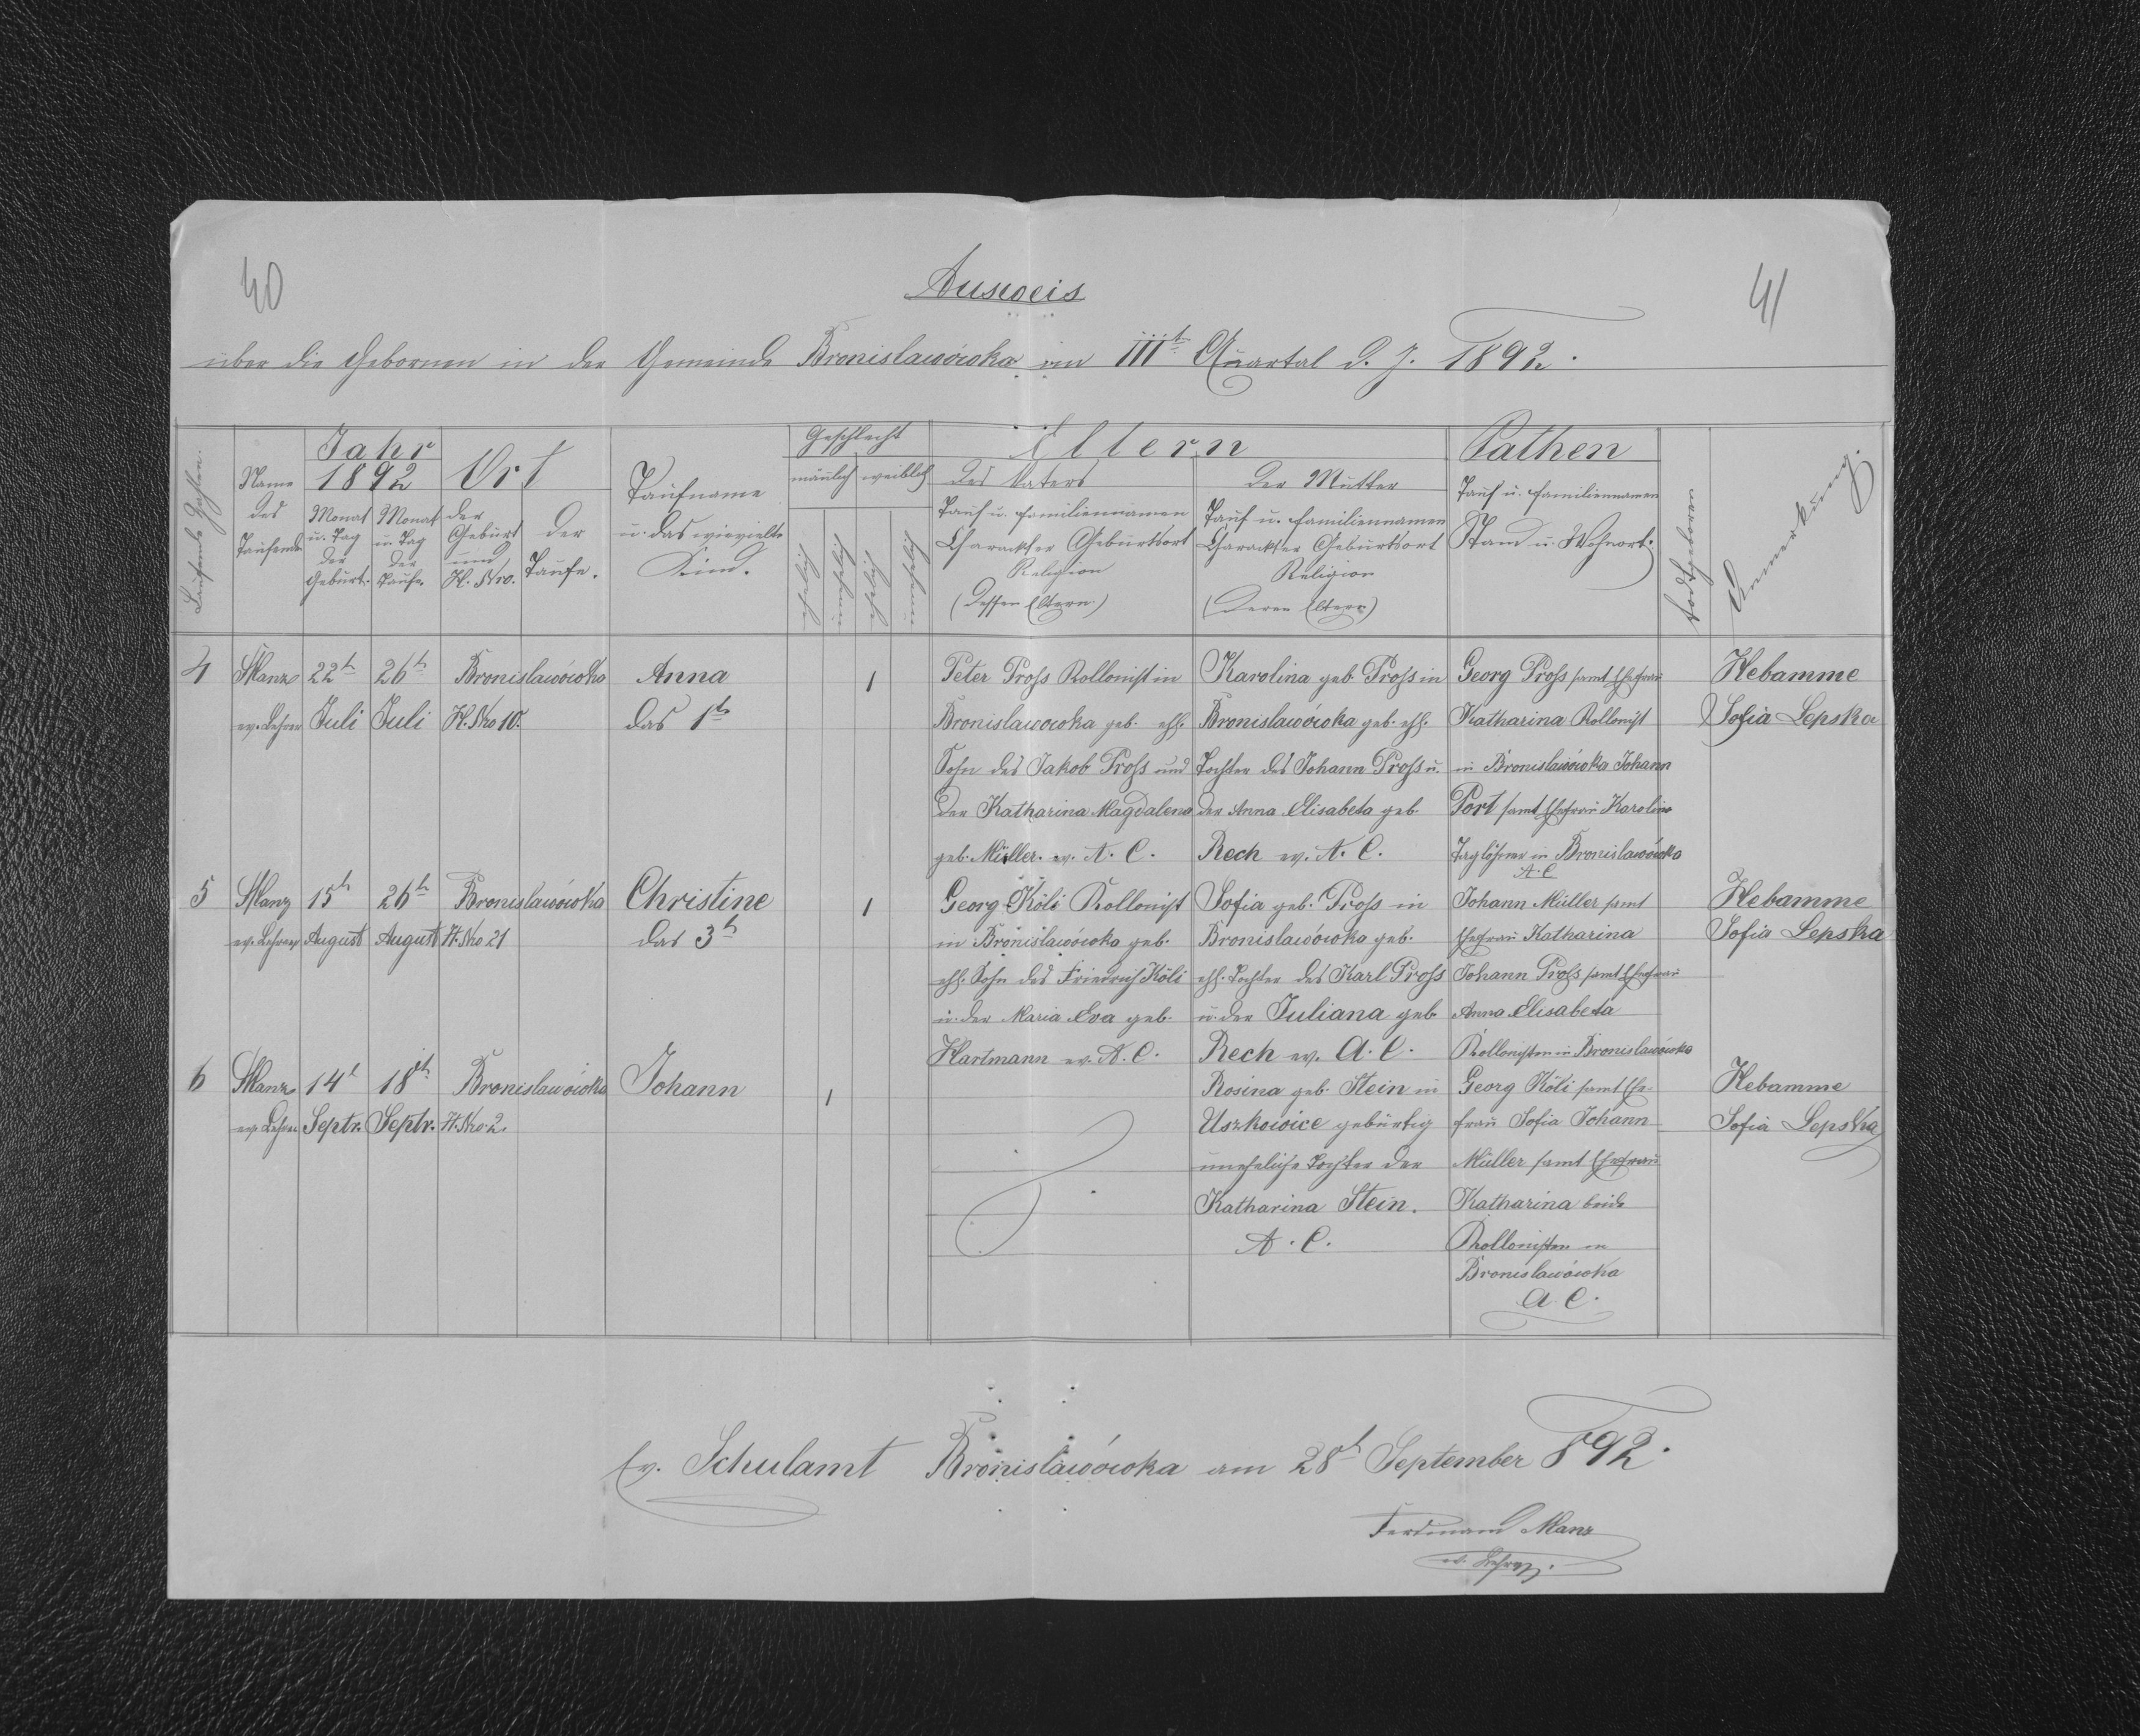 40
41
Ausweis
über die Gebornen in der Gemeinde Bronislawówka im IIIt Quartal d. J. 1892.
Laufende Zahlen.
Name des Taufenden
Jahr 1892
Monat u. Tag der Geburt.
Monat u. Tag der Taufe.
Ort
der Geburt und H. Nro.
der Taufe.
Taufname u. das wievielte Kind.
Geschlecht
mänlich
weiblich
Eltern
des Vaters
Tauf u. Familiennamen
Charackter Geburtsort
Religion
(dessen Eltern)
der Mutter
Tauf u. Familiennamen
Charackter Geburtsort
Religion
(deren Eltern)
Pathen
Tauf u. Familiennamen
Stand u. Wohnort.
todtgeboren
Anmerkung.
4 Manz 22t 26t Bronislawówka Anna 1 Peter Pross Kollonist in Karolina geb. Pross in Georg Pross samt Ehefrau Hebamme
ev. Lehrer Juli Juli H. Nro 10. das 1t Bronislawówka geb. ehl. Bronislawówka geb. ehl. Katharina Kollonist Sofia Lepska
Sohn des Jakob Pross und Tochter des Johann Pross u. in Bronislawówka Johann
der Katharina Magdalena der Anna Elisabeta geb. Port samt Ehefrau Karolina
geb. Müller. ev. A. C. Rech ev. A. C. Taglöhner in Bronislawówka
A. C.
5 Manz 15t 26t Bronislawówka Christine 1 Georg Köli Kollonist Sofia geb. Pross in Johann Müller samt Hebamme
ev. Lehrer August August H. Nro 21 das 3t in Bronislawówka geb. Bronislawówka geb. Ehefrau Katharina Sofia Lepska
ehl. Sohn des Friedrich Köli ehl. Tochter des Karl Pross Johann Pross samt Ehefrau
u. der Maria Eva geb. u. der Juliana geb Anna Elisabeta
Hartmann ev. A. C. Rech ev. A. C. Kollonisten in Bronislawówka
6 Manz 14t 18t Bronislawówka Johann 1 Rosina geb. Stein in Georg Köli samt Ehe- Hebamme
ev. Lehrer Septr. Septr. H. Nro 2. Uszkowice gebürtig frau Sofia Johann Sofia Lepska
uneheliche Tochter der Müller samt Ehefrau
Katharina Stein. Katharina beide
A. C. Kollonisten in
Bronislawówka
A. C.
Ev. Schulamt Bronislawówka am 28t September 892.
Ferdinand Manz
ev. Lehrer.